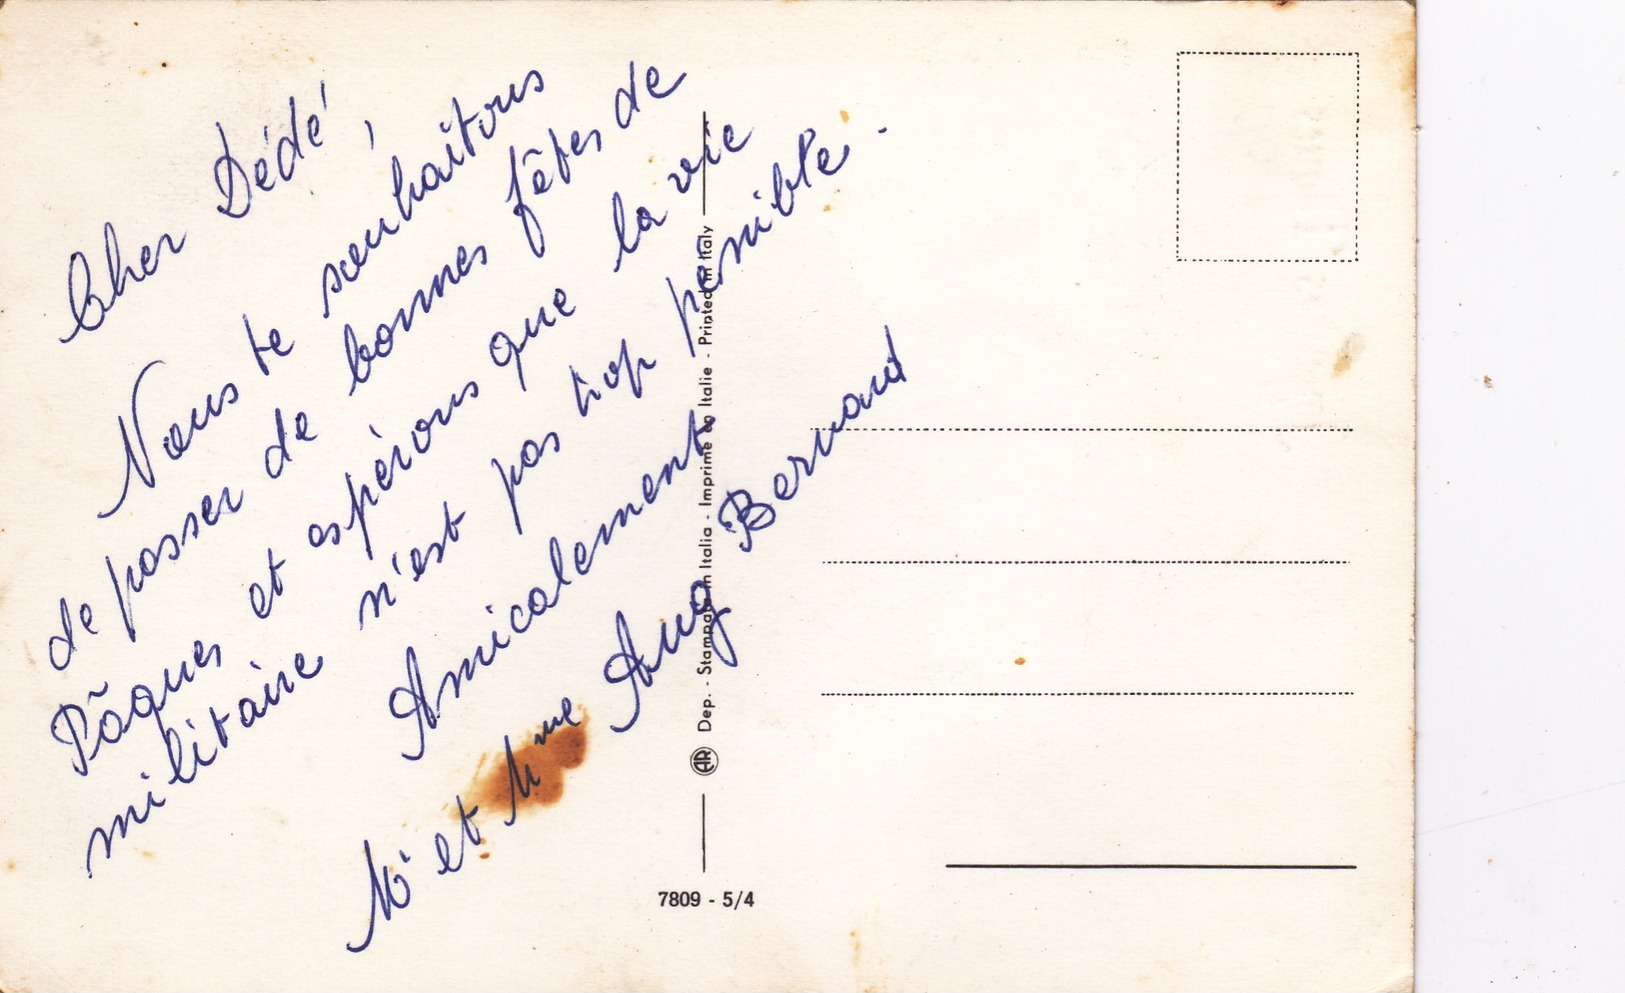 Cher Dédé,
Nous te souhaitons
de passer de bonnes fêtes de
Pâques et espérons que la vie
militaire n'est pas trop pénible.
Amicalement
Mr et Mme Aug Bernard
Dep. - Stampato in Italia - Imprimé en Italie - Printed in Italy
AR
7809 - 5/4